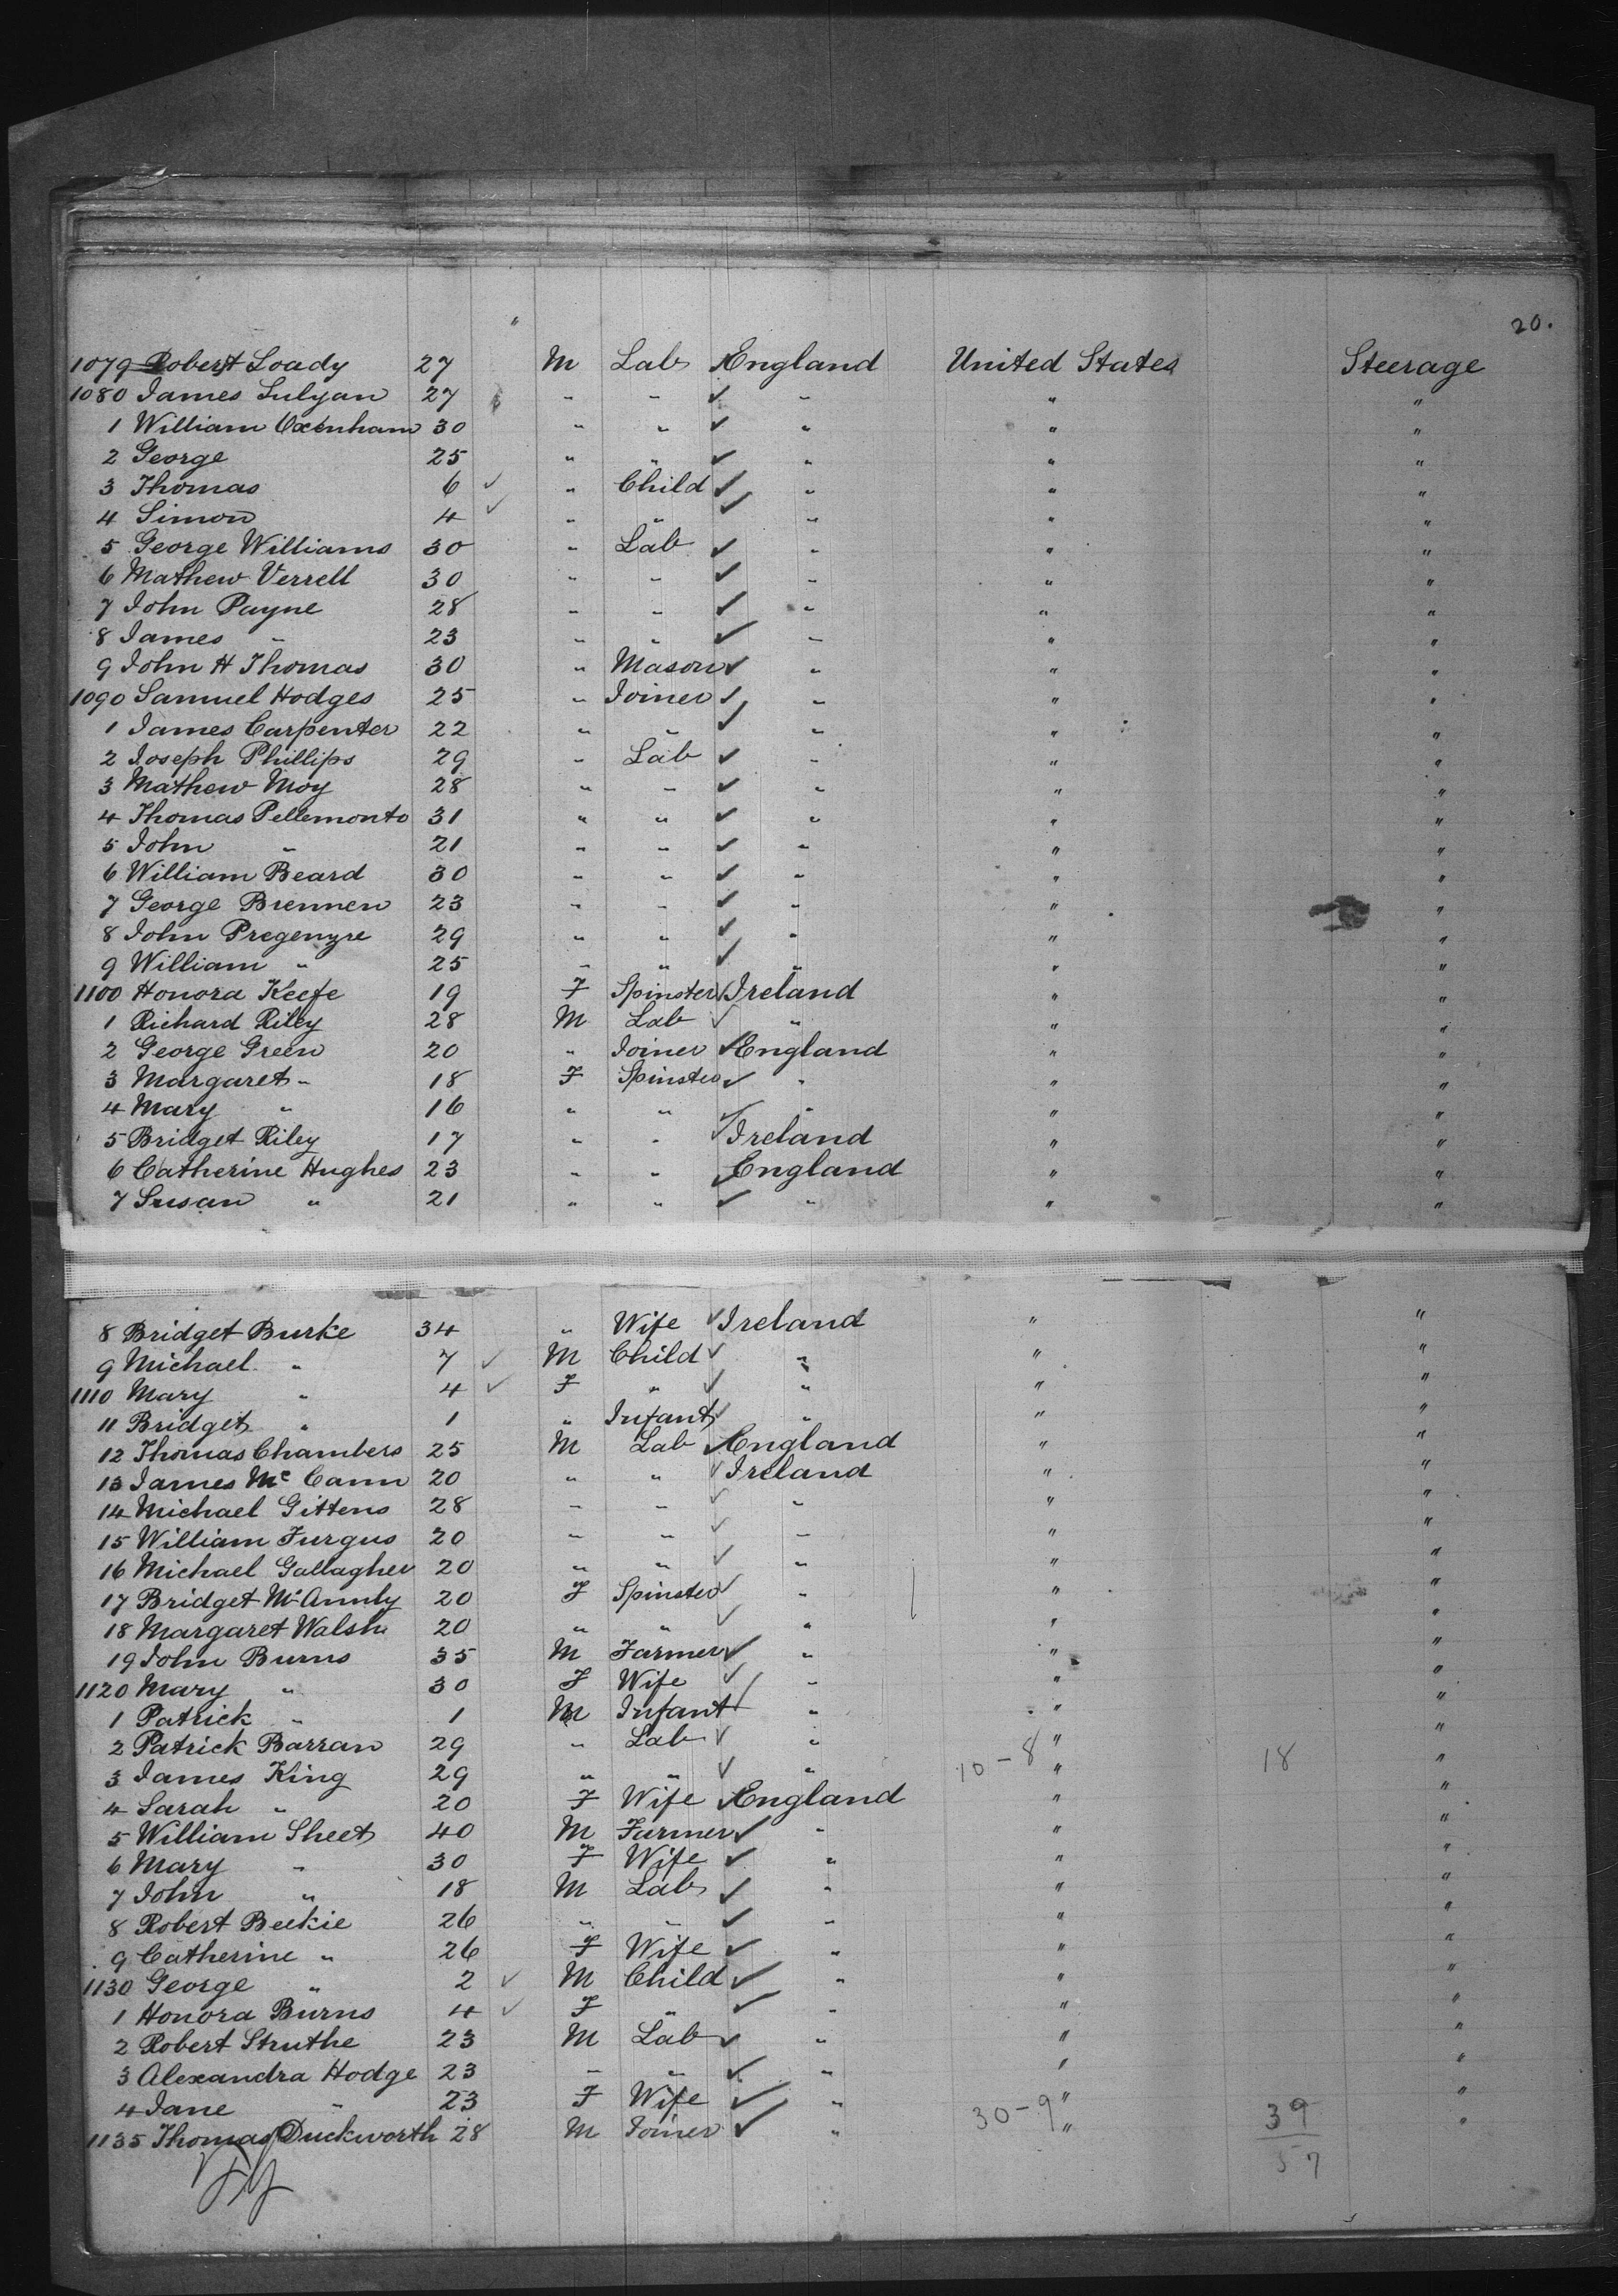 20.
1079 Robert Loady 27 M Lab England United States Steerage
1080 James Sulyan 27 " " " " "
1 William Oxenham 30 " " " " "
2 George 25 " " " " "
3 Thomas 6 " Child " " "
4 Simon 4 " " " " "
5 George Williams 30 " Lab " " "
6 Mathew Verrell 30 " " " " "
7 John Payne 28 " " " " "
8 James " 23 " " " " "
9 John H Thomas 30 " Mason " " "
1090 Samuel Hodges 25 " Joiner " " "
1 James Carpenter 22 " " " " "
2 Joseph Phillips 29 " Lab " " "
3 Mathew Moy 28 " " " " "
4 Thomas Pellemonto 31 " " " " "
5 John " 21 " " " " "
6 William Beard 30 " " " " "
7 George Brennen 23 " " " " "
8 John Pregenyre 29 " " " " "
9 William " 25 " " " " "
1100 Honora Keefe 19 F Spinster Ireland " "
1 Richard Riley 28 M Lab " " "
2 George Green 20 " Joiner England " "
3 Margaret " 18 F Spinster " " "
4 Mary " 16 " " " " "
5 Bridget Riley 17 " " Ireland " "
6 Catherine Hughes 23 " " England " "
7 Susan " 21 " " " " "
8 Bridget Burke 34 " Wife Ireland " "
9 Michael " 7 M Child " " "
1110 Mary " 4 F " " " "
11 Bridget " 1 " Infant " " "
12 Thomas Chambers 25 M Lab England " "
13 James Mc Cann 20 " " Ireland " "
14 Michael Gittens 28 " " " " "
15 William Furgus 20 " " " " "
16 Michael Gallagher 20 " " " " "
17 Bridget McAnnly 20 F Spinster " " "
18 Margaret Walsh 20 " " " " "
19 John Burns 35 M Farmer " " "
1120 Mary " 30 F Wife " " "
1 Patrick " 1 M Infant " " "
2 Patrick Barran 29 " Lab " " "
3 James King 29 " " " 10-8 " 18 "
4 Sarah " 20 F Wife England " "
5 William Sheet 40 M Farmer " " "
6 Mary " 30 F Wife " " "
7 John " 18 M Lab " " "
8 Robert Beekie 26 " " " " "
9 Catherine " 26 F Wife " " "
1130 George " 2 M Child " " "
1 Honora Burns 4 F " " " "
2 Robert Struthe 23 M Lab " " "
3 Alexandra Hodge 23 " " " " "
4 Jane " 23 F Wife " " "
1135 Thomas Duckworth 28 M Joiner " 30-9 " 39 "
57